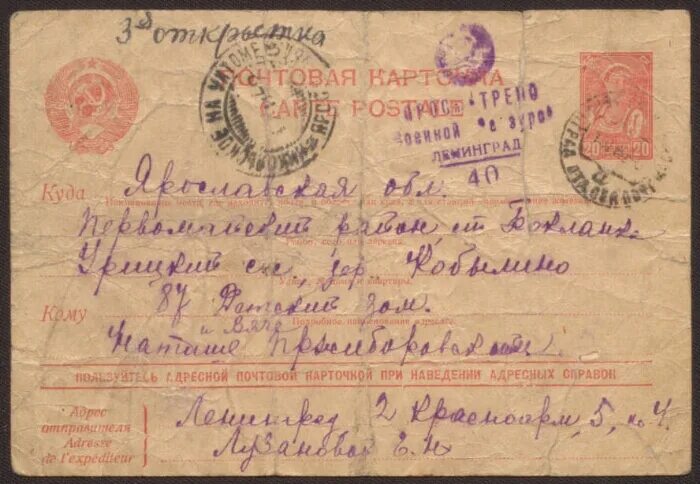 3я открытка
ПОЧТОВАЯ КАРТОЧКА
CARTE POSTALE
ПРОСМОТРЕНО
Военной Цензурой
ЛЕНИНГРАД
40
20 20
Куда Ярославская обл.
Первомайский район, ст. Бакланк.
Район, село или деревня
Урицкий с/с, дер. Кобылино
Улица, № дома и квартиры
87 Детский дом.
Кому
Подробное наименование адресата
и Вяче
Наташе
ПОЛЬЗУЙТЕСЬ АДРЕСНОЙ ПОЧТОВОЙ КАРТОЧКОЙ ПРИ НАВЕДЕНИИ АДРЕСНЫХ СПРАВОК
Адрес отправителя
Adresse de l'expéditeur
Ленинград 2 Красноарм, 5, к 4.
Лузановой Е. Н